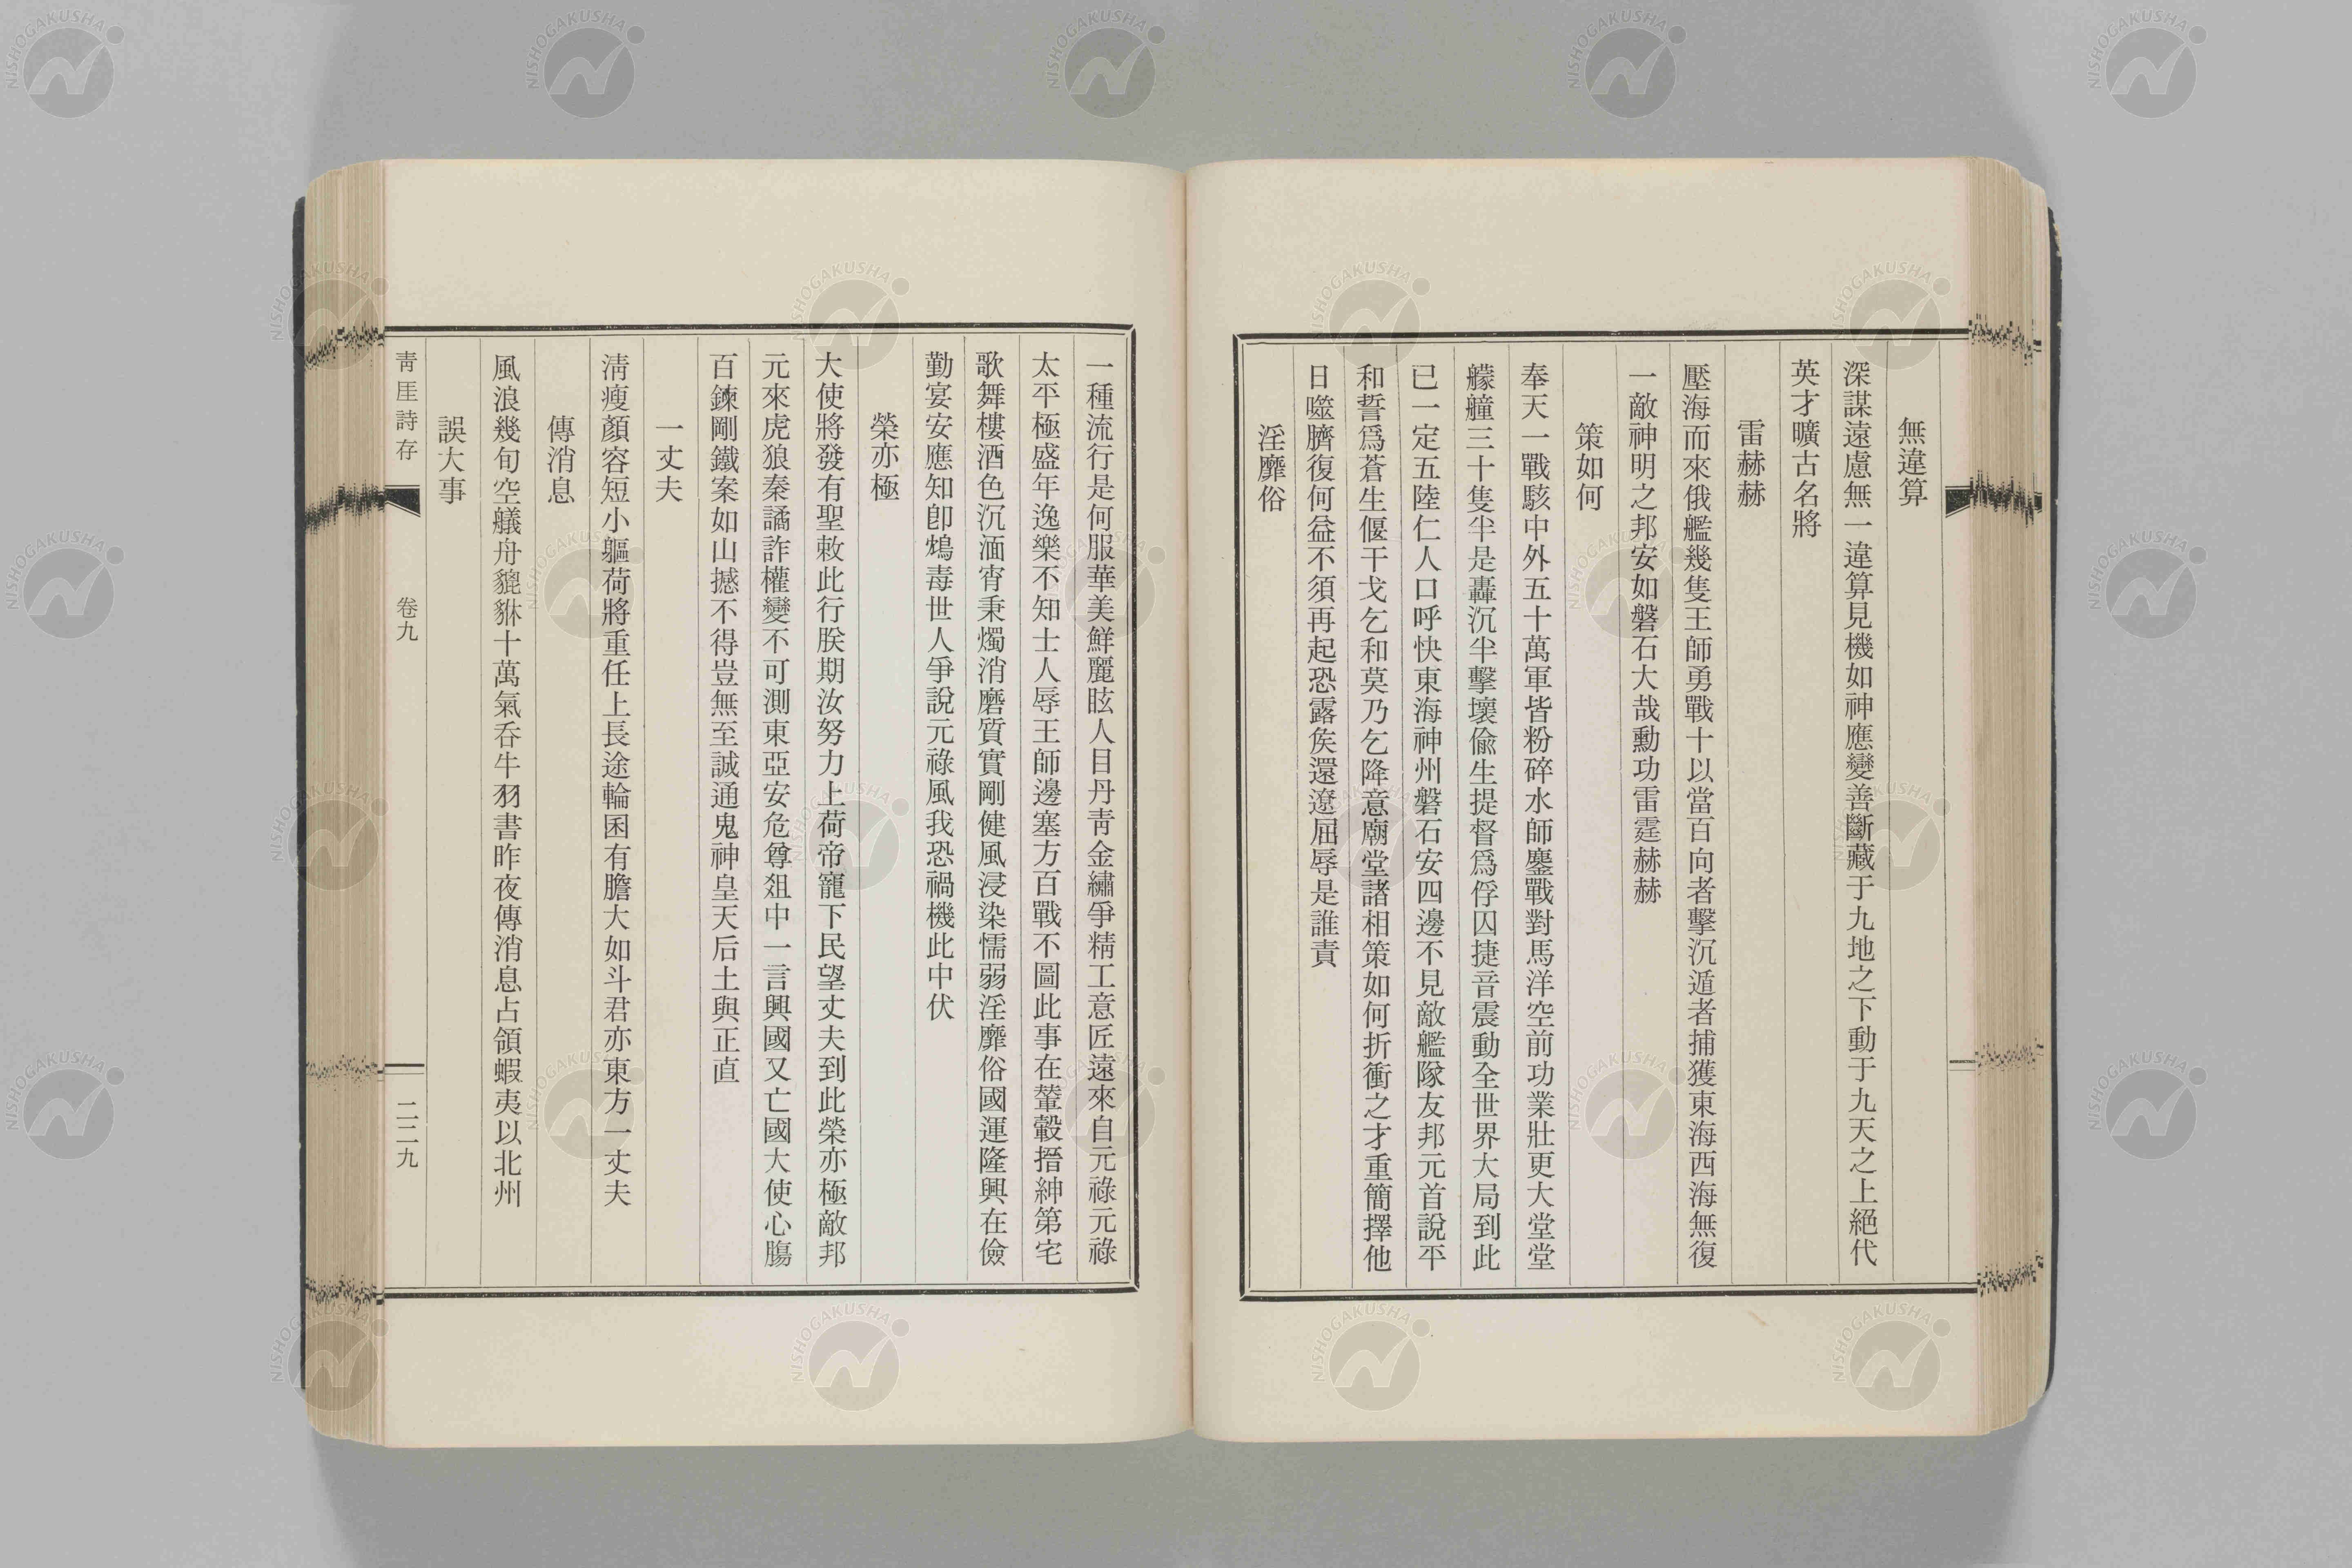 無違算
深謀遠慮無一違算見機如神應變善斷藏于九地之下動于九天之上絕代
英才曠古名將
雷赫赫
壓海而來俄艦幾隻王師勇戰十以當百向者擊沉遁者捕獲東海西海無復
一敵神明之邦安如磐石大哉勳功雷霆赫赫
策如何
奉天一戰駭中外五十萬軍皆粉碎水師鏖戰對馬洋空前功業壯更大堂堂
艨艟三十隻半是轟沉半擊壞偸生提督爲俘囚捷音震動全世界大局到此
已一定五陸仁人口呼快東海神州磐石安四邊不見敵艦隊友邦元首說平
和誓爲蒼生偃干戈乞和莫乃乞降意廟堂諸相策如何折衝之才重簡擇他
日噬臍復何益不須再起恐露矦還遼屈辱是誰責
淫靡俗
一種流行是何服華美鮮麗眩人目丹靑金繡爭精工意匠遠來自元祿元祿
太平極盛年逸樂不知士人辱王師邊塞方百戰不圖此事在輦轂搢紳第宅
歌舞樓酒色沉湎宵秉燭消磨質實剛健風浸染懦弱淫靡俗國運隆興在儉
勤宴安應知卽鴆毒世人爭說元祿風我恐禍機此中伏
榮亦極
大使將發有聖敕此行朕期汝努力上荷帝寵下民望丈夫到此榮亦極敵邦
元來虎狼秦譎詐權變不可測東亞安危尊俎中一言興國又亡國大使心膓
百鍊剛鐵案如山撼不得豈無至誠通鬼神皇天后土與正直
一丈夫
淸瘦顏容短小軀荷將重任上長途輪囷有膽大如斗君亦東方一丈夫
傳消息
風浪幾旬空艤舟貔貅十萬氣呑牛羽書昨夜傳消息占領蝦夷以北州
誤大事
靑厓詩存
卷九
二二九
NISHOGAKUSHA